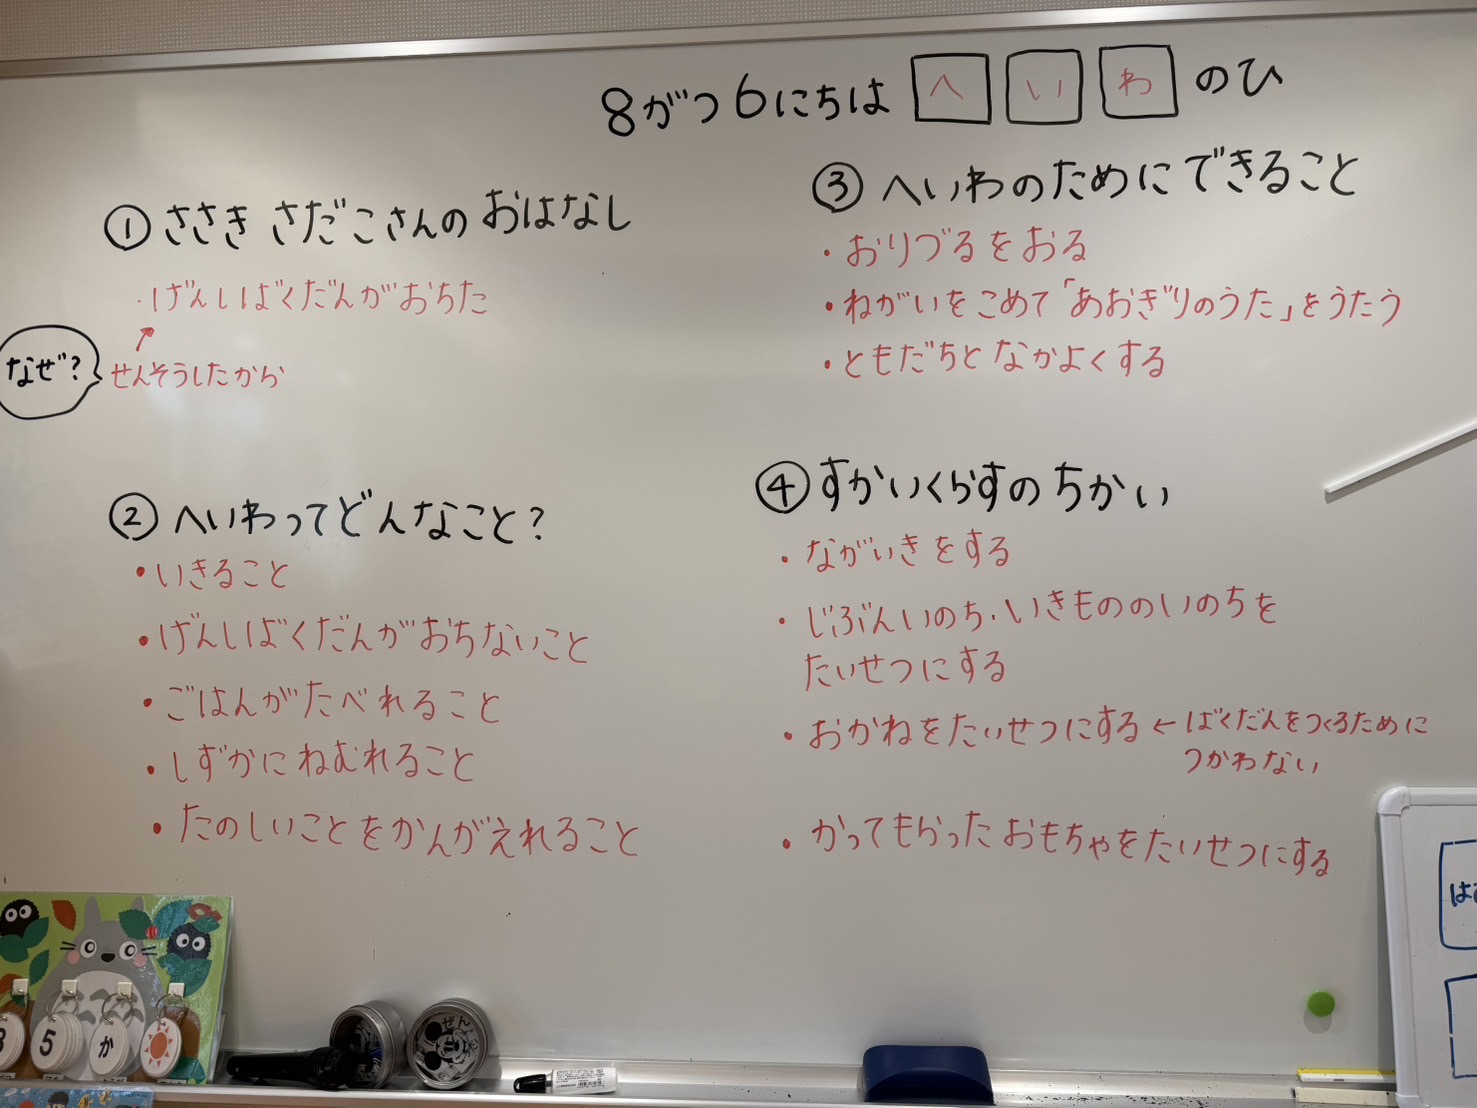 8がつ6にちは へいわ のひ
① ささき さだこさんの おはなし
・げんしばくだんがおちた
なぜ?
せんそうしたから
② へいわってどんなこと?
・いきること
・げんしばくだんがおちないこと
・ごはんがたべれること
・しずかにねむれること
・たのしいことをかんがえれること
③ へいわのためにできること
・おりづるをおる
・ねがいをこめて「あおぎりのうた」をうたう
・ともだちとなかよくする
④ すかいくらすのちかい
・ながいきをする
・じぶんいのち・いきもののいのちを
たいせつにする
・おかねをたいせつにする ← ばくだんをつくるために
つかわない
・かってもらったおもちゃをたいせつにする
5
か